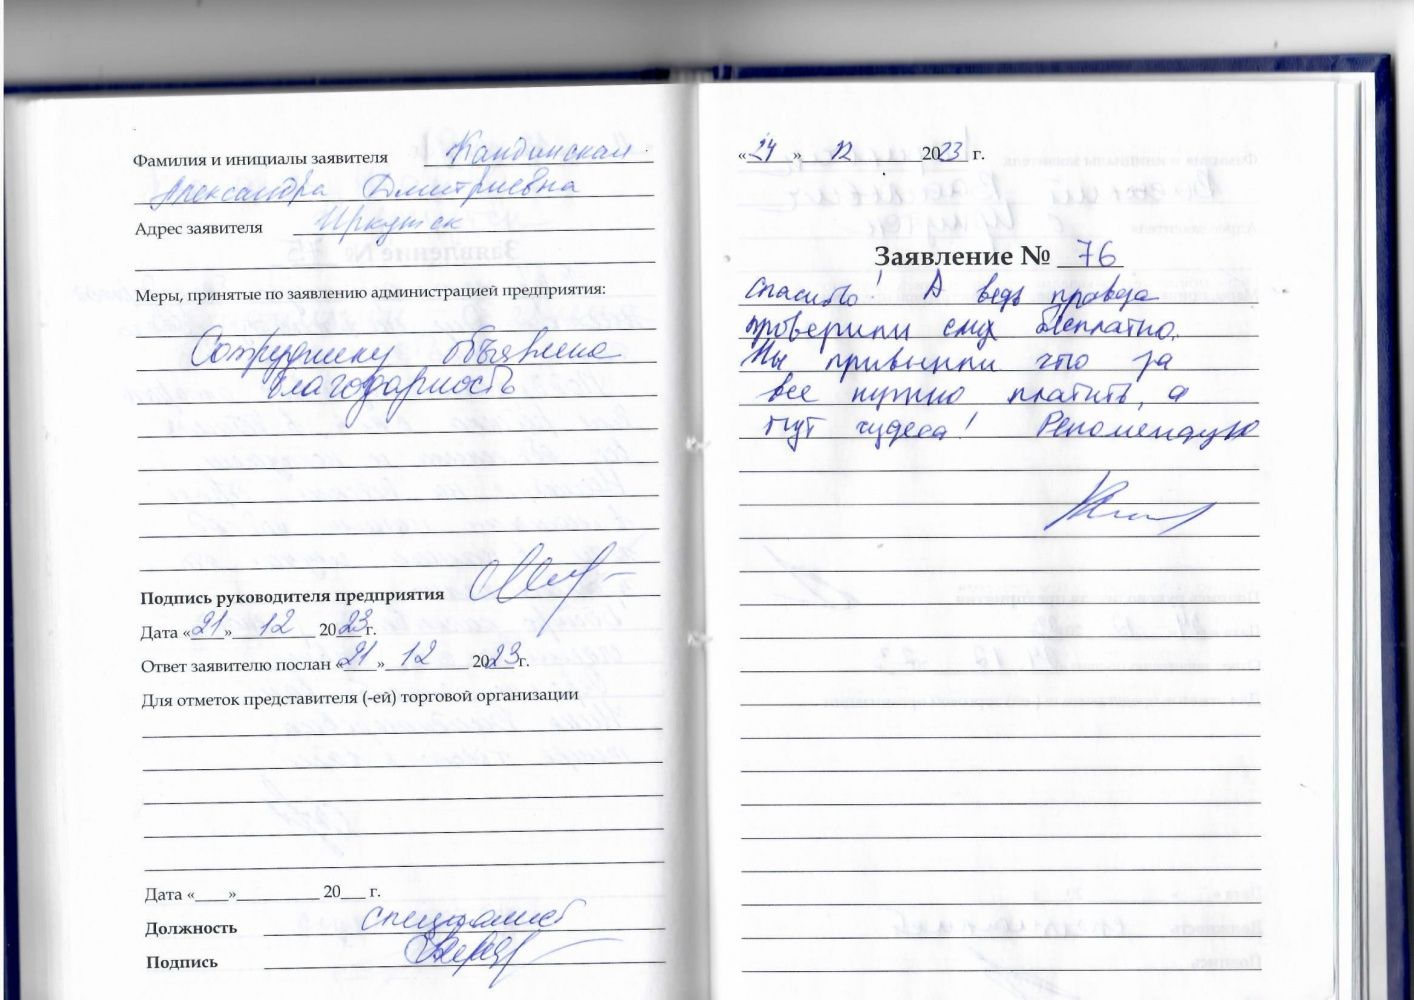 Фамилия и инициалы заявителя Кандинская
Александра Дмитриевна
Адрес заявителя Иркутск
Меры, принятые по заявлению администрацией предприятия:
Сотруднику объявлена
благодарность
Подпись руководителя предприятия
Дата «21» 12 2023г.
Ответ заявителю послан «21» 12 2023г.
Для отметок представителя (-ей) торговой организации
Дата «____»__________ 20___ г.
Должность специалист
Подпись
«24» 12 2023 г.
Заявление № 76
Спасибо! А ведь правда
проверили слух бесплатно.
Мы привыкли что за
все нужно платить, а
тут чудеса! Рекомендую